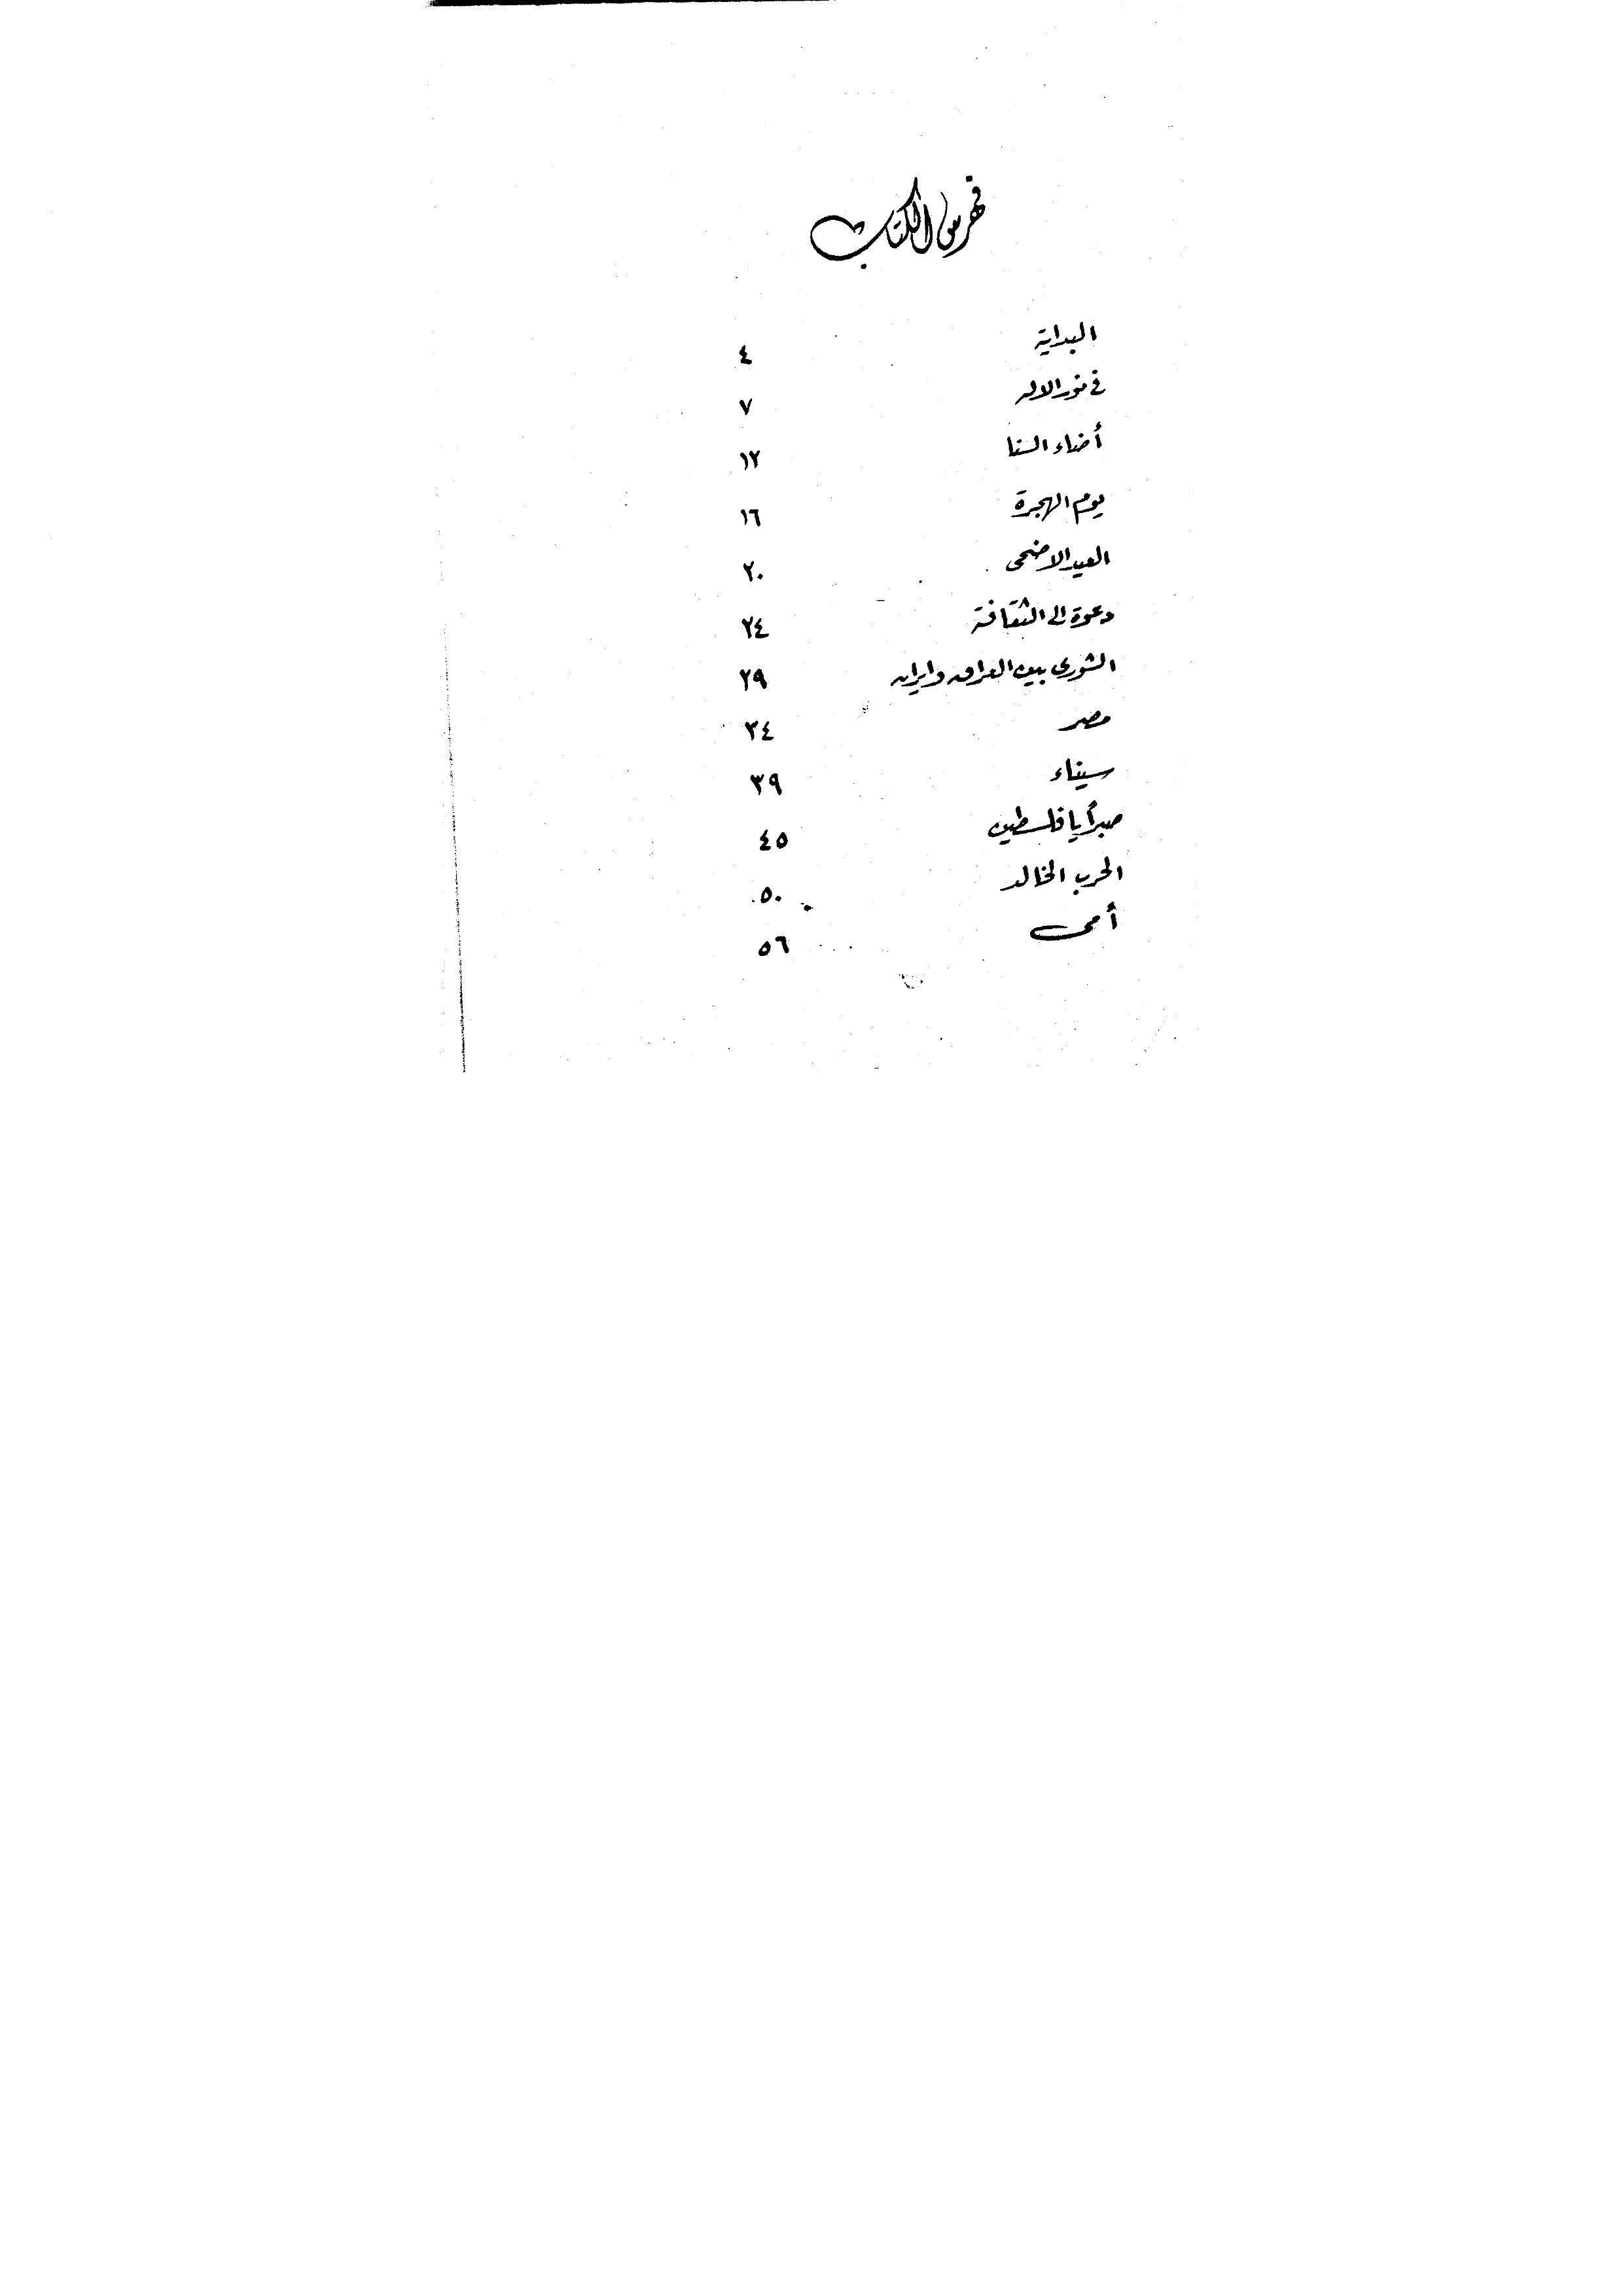 فهرس الكتاب
البداية ٤
في نور الاله ٧
أضاء السنا ١٢
يوم الهجرة ١٦
العيد الاضحى ٢٠
دعوة الى الثقافة ٢٤
الشورى بين العراق وايران ٢٩
مصر ٣٤
سيناء ٣٩
صبراً يا فلسطين ٤٥
الحرب الخالد ٥٠
أمى ٥٦